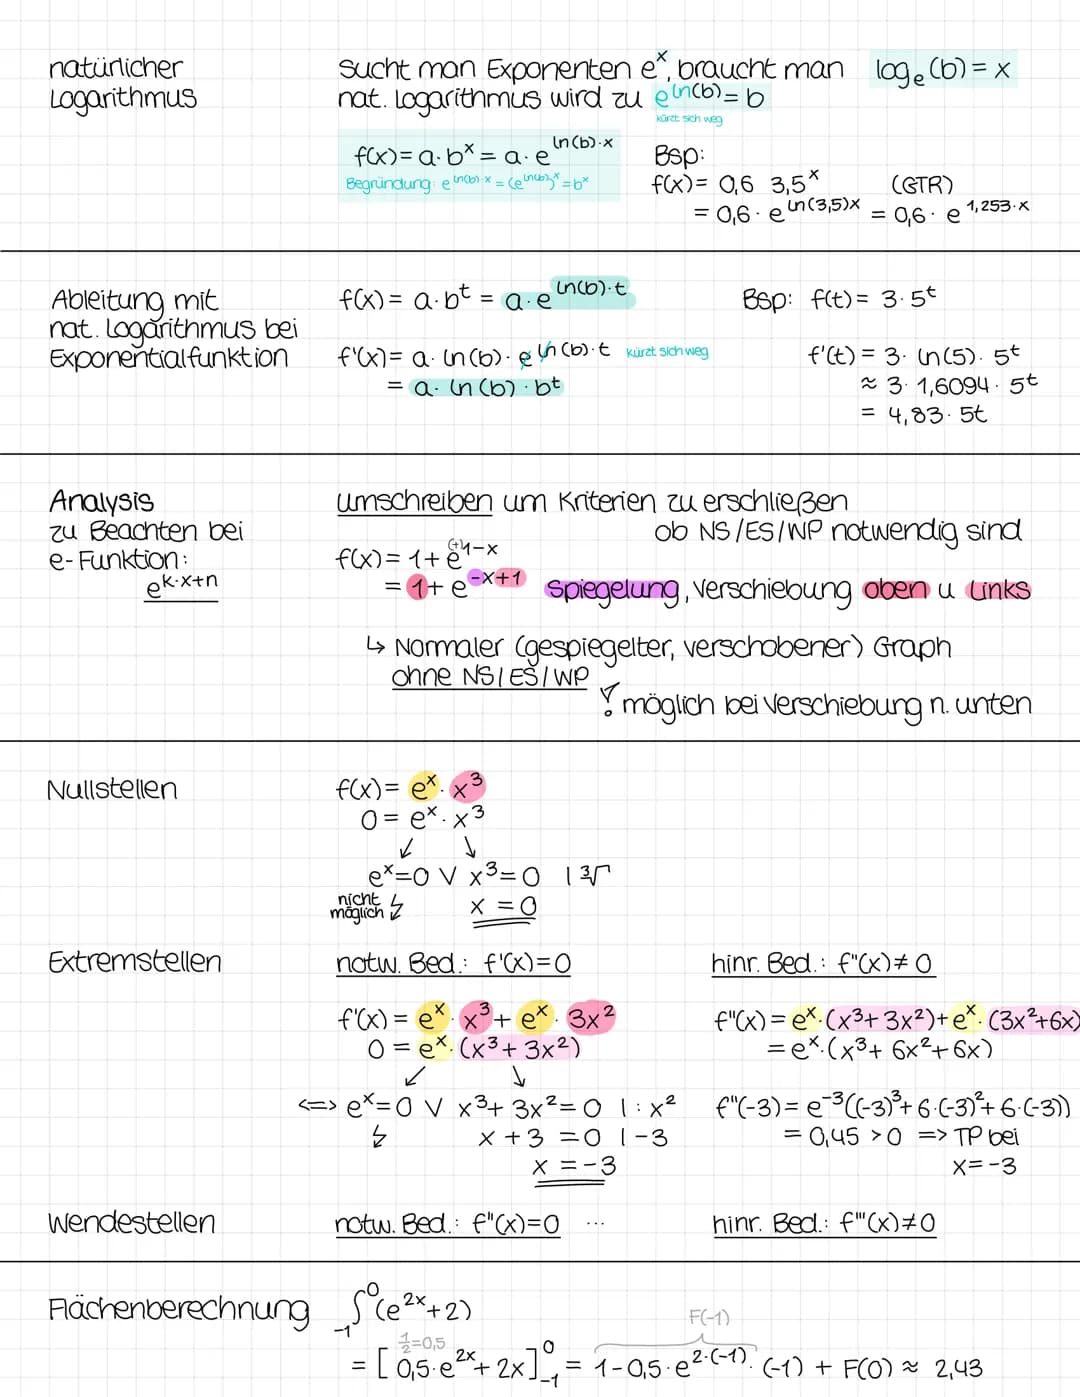 natürlicher
Logarithmus
sucht man Exponenten eˣ, braucht man logₑ(b) = x
nat. Logarithmus wird zu e^ln(b) = b
kürzt sich weg
f(x) = a · bˣ = a · e^ln(b)·x
Begründung: e^ln(b)·x = (e^ln(b))^x = bˣ
Bsp:
f(x) = 0,6 3,5ˣ (GTR)
= 0,6 · e^ln(3,5)x = 0,6 · e^1,253·x
Ableitung mit
nat. Logarithmus bei
Exponentialfunktion
f(x) = a · b^t = a · e^ln(b)·t
f'(x) = a · ln(b) · e^ln(b)·t kürzt sich weg
= a · ln(b) · b^t
Bsp: f(t) = 3 · 5^t
f'(t) = 3 · ln(5) · 5^t
≈ 3 · 1,6094 · 5^t
= 4,83 · 5t
Analysis
zu Beachten bei
e-Funktion:
e^k·x+n
umschreiben um Kriterien zu erschließen
ob NS/ES/WP notwendig sind
f(x) = 1 + e^(+)1-x
= 1 + e^-x+1 Spiegelung, Verschiebung oben u Links
↳ Normaler (gespiegelter, verschobener) Graph
ohne NS/ES/WP
! möglich bei Verschiebung n. unten
Nullstellen
f(x) = eˣ · x³
0 = eˣ · x³
↙ ↘
eˣ=0 ∨ x³=0 | ³√
nicht
möglich ↯
x = 0
Extremstellen
notw. Bed.: f'(x)=0
f'(x) = eˣ · x³ + eˣ · 3x²
0 = eˣ · (x³ + 3x²)
↙ ↘
<=> eˣ=0 ∨ x³ + 3x² = 0 | : x²
↯ x + 3 = 0 | -3
x = -3
hinr. Bed.: f"(x) ≠ 0
f"(x) = eˣ · (x³ + 3x²) + eˣ · (3x²+6x)
= eˣ · (x³ + 6x² + 6x)
f"(-3) = e⁻³((-3)³ + 6·(-3)² + 6·(-3))
= 0,45 > 0 => TP bei
x = -3
Wendestellen
notw. Bed.: f"(x)=0 ...
hinr. Bed.: f'''(x)≠0
Flächenberechnung
∫₋₁⁰ (e^2x + 2)
½=0,5
F(-1)
= [0,5 · e^2x + 2x]₋₁⁰ = 1 - 0,5 · e^2·(-1) · (-1) + F(0) ≈ 2,43